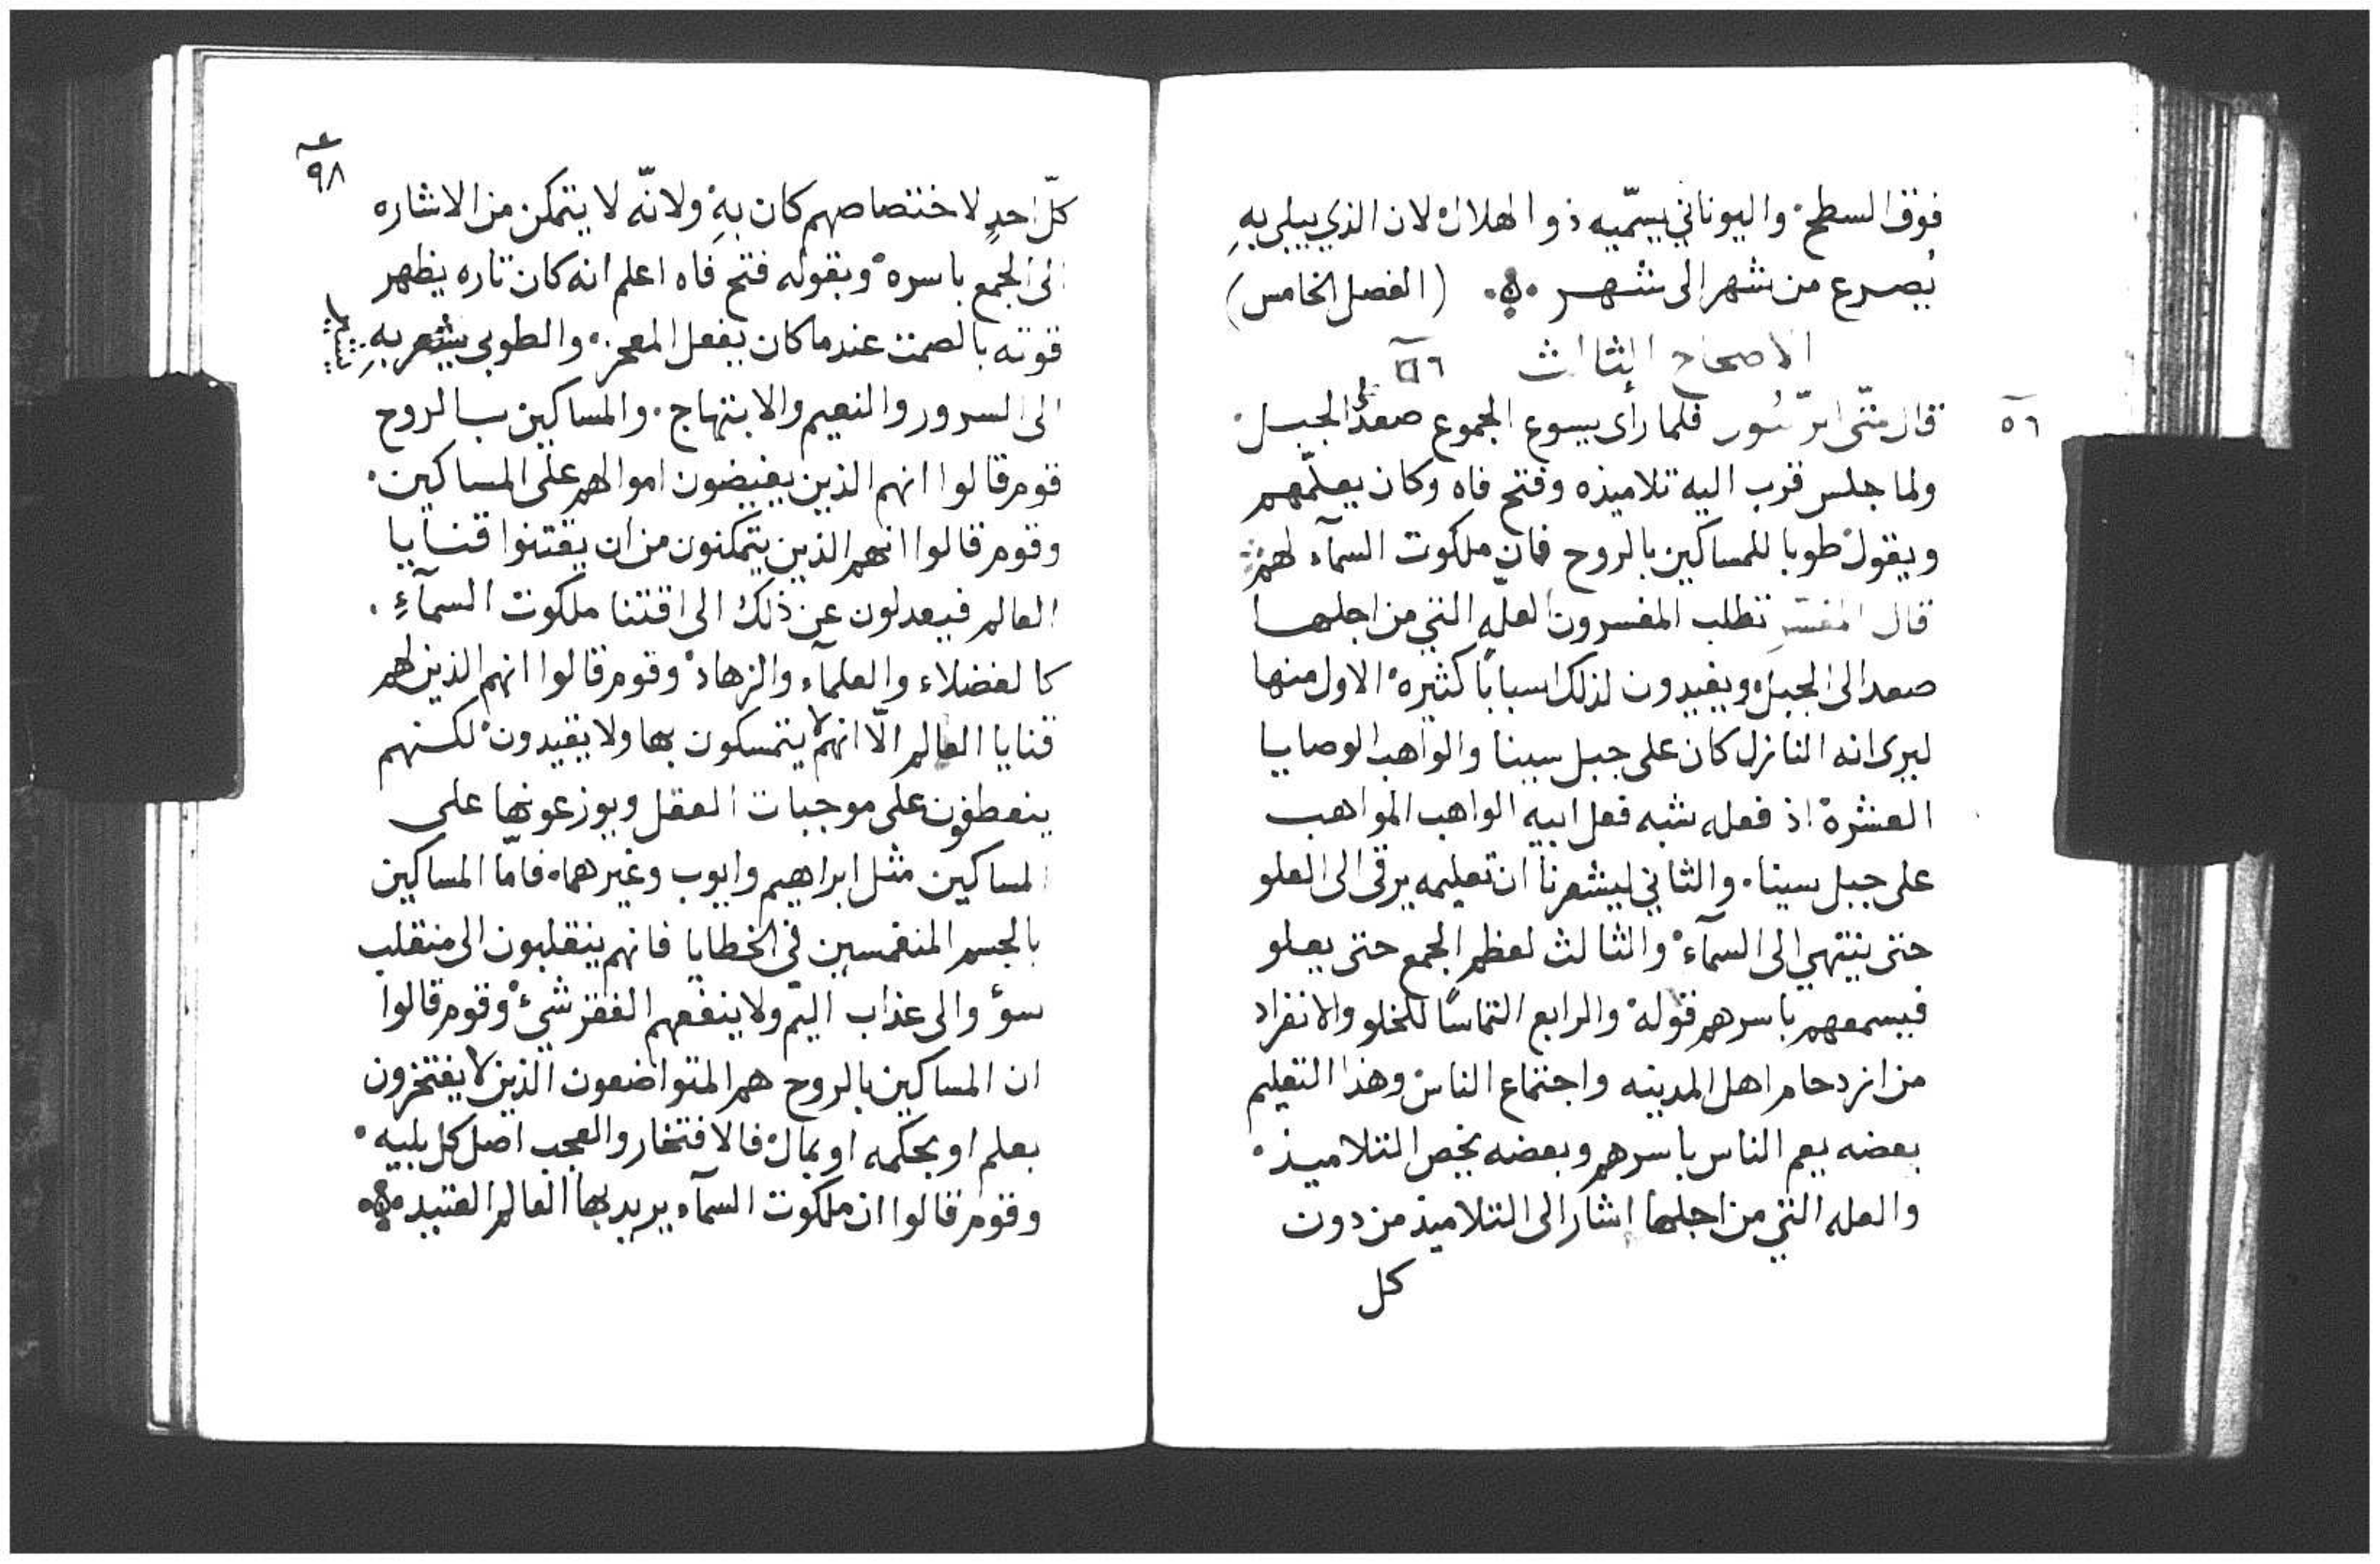 فوق السطح والیوناني یسمّیه ذو الهلال لان الذي یبلی بهِ
یصرع من شهر الی شهر (الفصل الخامس)
الاصحاح الثالث ٥٦
٥٦
قال متّی الرسُول فلما رأی یسوع الجموع صعد الی الجبل
ولما جلس قرب الیه تلامیذه وفتح فاه وکان یعلّمهم
ویقول طوبا للمساکین بالروح فان ملکوت السمآء لهم
قال المفسّر تطلب المفسرون العله التي من اجلها
صعد الی الجبل ویفیدون لذلک اسبابًا کثیره الاول منها
لیری انه النازل کان علی جبل سینا والواهب الوصایا
العشرة اذ فعله شبه فعل ابیه الواهب المواهب
علی جبل سینا. والثاني لیشعرنا ان تعلیمه یرقی الی العلو
حتی ینتهي الی السمآء والثالث لعظم الجمع حتی یعلو
فیسمعهم باسرهم قوله والرابع التماسًا للخلو والانفراد
من ازدحام اهل المدینه واجتماع الناس وهذا التعلیم
بعضه یعم الناس باسرهم وبعضه یخص التلامیذ
والعله التي من اجلها اشار الی التلامیذ من دون
کل
٩٨
کلّ احدٍ لاختصاصهم کان بهِ ولانّه لا یتمکن من الاشاره
الی الجمع باسره وبقوله فتح فاه اعلم انه کان تاره یظهر
قوته بالصمت عندما کان یفعل المعجز. والطوبی یشعر بهِ
الی السرور والنعیم والابتهاج. والمساکین بالروح
قوم قالوا انهم الذین یفیضون اموالهم علی المساکین
وقوم قالوا انهم الذین یتمکنون من ان یقتنوا قنایا
العالم فیعدلون عن ذلک الی اقتنا ملکوت السمآءِ.
کالفضلاء والعلمآء والزهاد وقوم قالوا انهم الذین لهم
قنایا العالم الّا انهم لا یتمسکون بها ولا یفیدون لکنهم
ینعطفون علی موجبات العقل ویوزعونها علی
المساکین مثل ابراهیم وایوب وغیرهما. فامّا المساکین
بالجسم المنغمسین في الخطایا فانهم ینقلبون الی منقلب
سوؤ والی عذاب الیم ولا ینفعهم الفقر شيء وقوم قالوا
ان المساکین بالروح هم المتواضعون الذین لا یفتخرون
بعلم او بحکمه او بمال فالافتخار والعجب اصل کل بلیه
وقوم قالوا ان ملکوت السمآء یرید بها العالم العتید